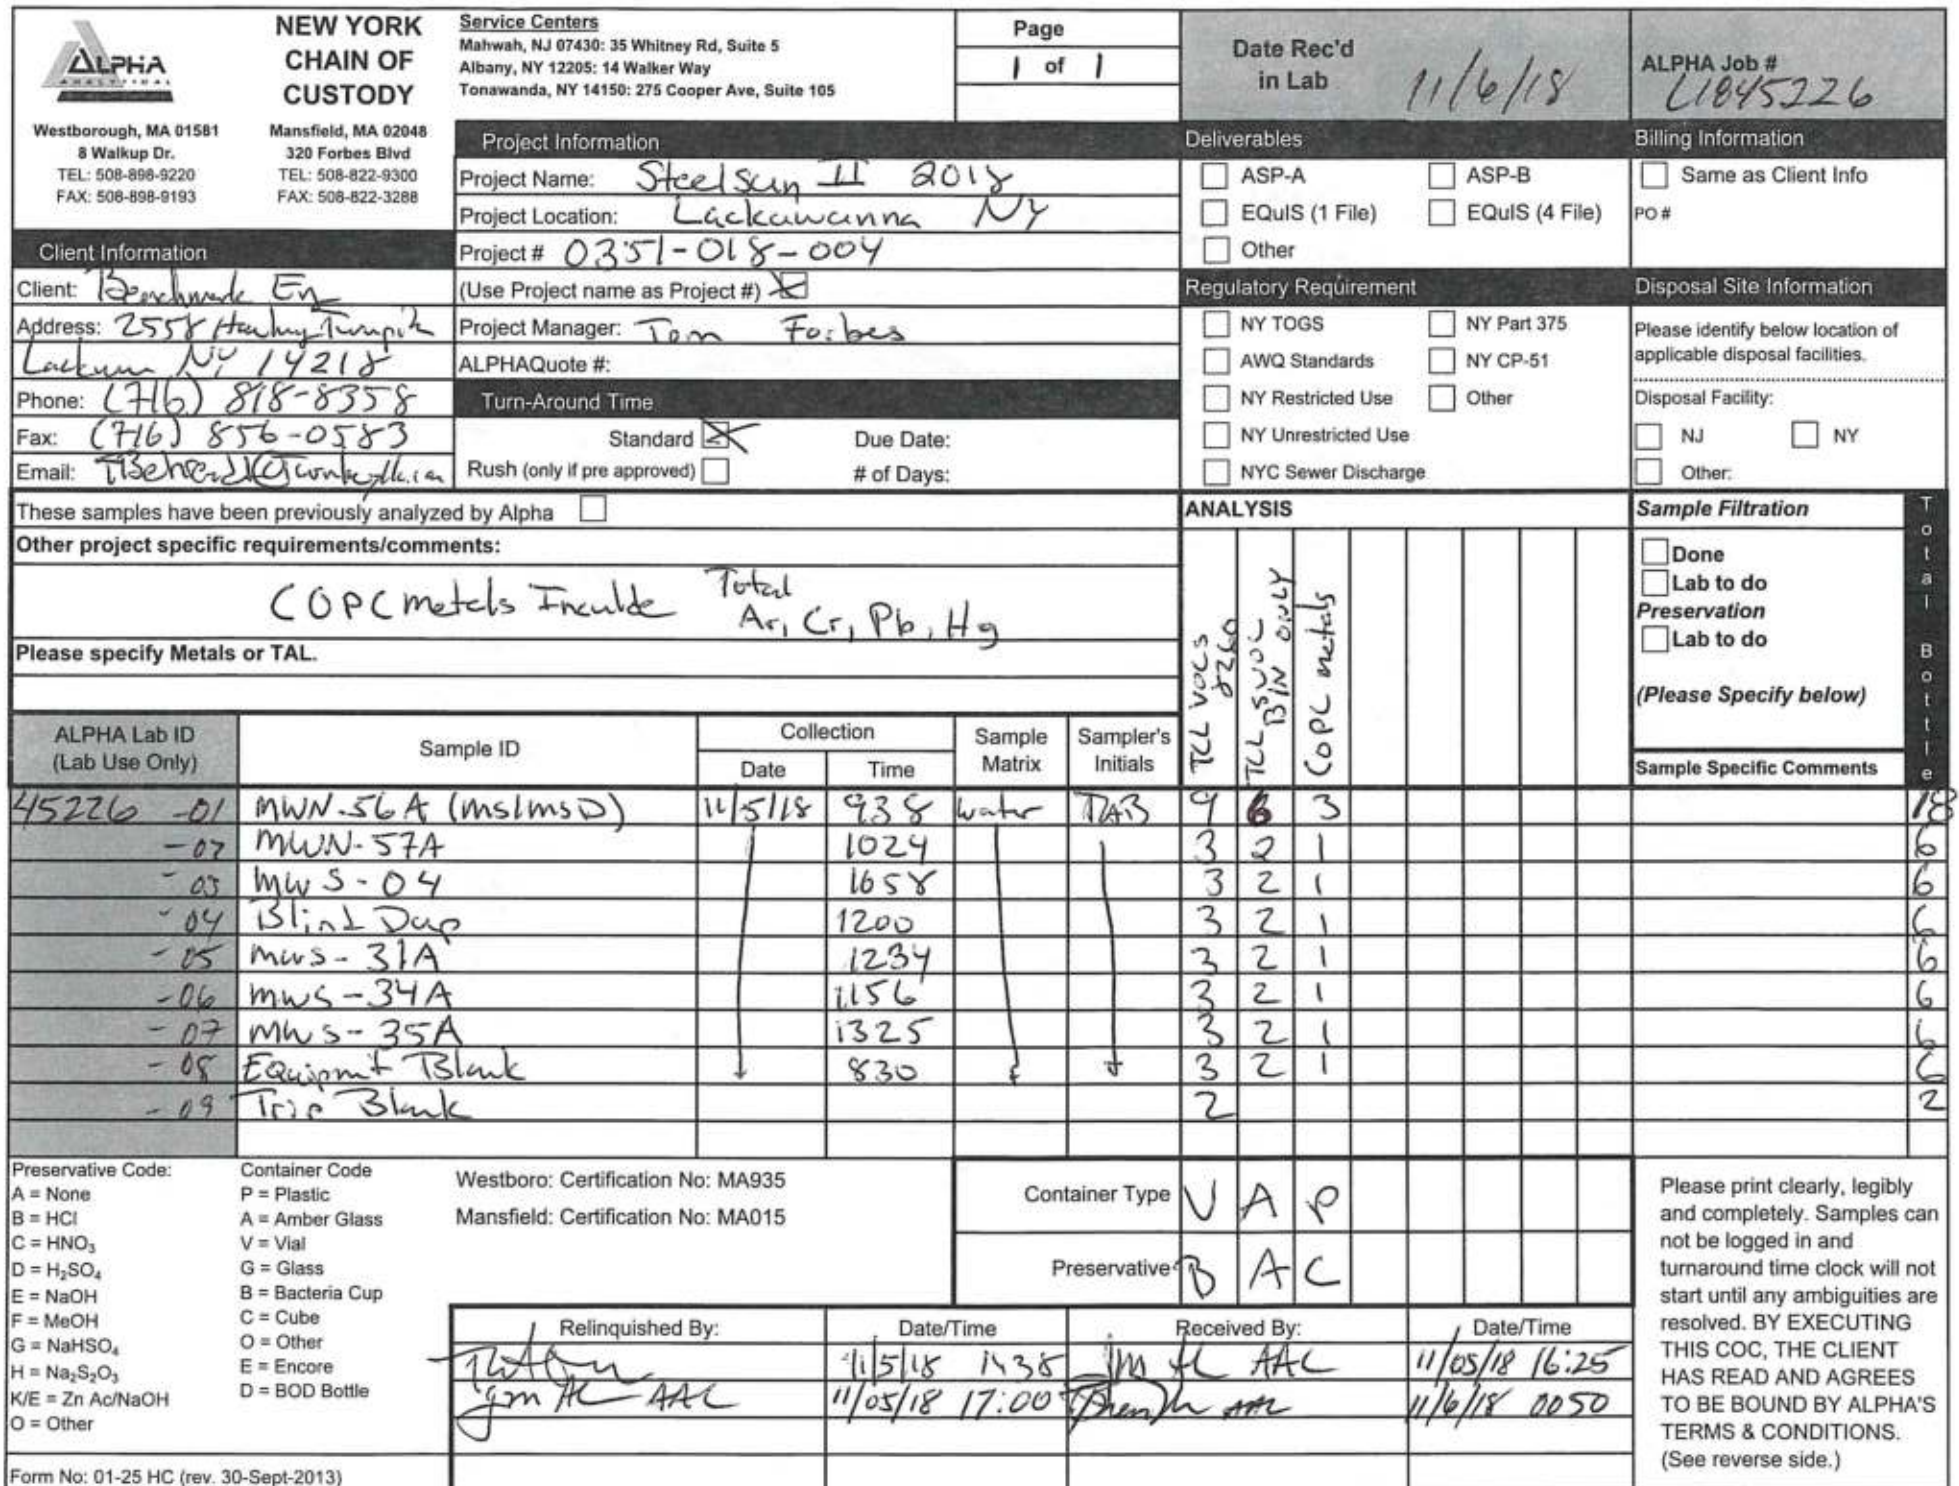 ALPHA
ANALYTICAL
NEW YORK
CHAIN OF
CUSTODY
Westborough, MA 01581
8 Walkup Dr.
TEL: 508-898-9220
FAX: 508-898-9193
Mansfield, MA 02048
320 Forbes Blvd
TEL: 508-822-9300
FAX: 508-822-3288
Service Centers
Mahwah, NJ 07430: 35 Whitney Rd, Suite 5
Albany, NY 12205: 14 Walker Way
Tonawanda, NY 14150: 275 Cooper Ave, Suite 105
Page
1 of 1
Date Rec'd
in Lab 11/6/18
ALPHA Job #
L1845226
Project Information
Project Name: Steelsun II 2018
Project Location: Lackawanna NY
Project # 0351-018-004
(Use Project name as Project #)
Project Manager: Tom Forbes
ALPHAQuote #:
Turn-Around Time
Standard Due Date:
Rush (only if pre approved) # of Days:
Client Information
Client: Benchmark En
Address: 2558
NY 14218
Phone: (716) 818-8358
Fax: (716) 856-0583
Email:
Deliverables
ASP-A ASP-B
EQuIS (1 File) EQuIS (4 File)
Other
Regulatory Requirement
NY TOGS NY Part 375
AWQ Standards NY CP-51
NY Restricted Use Other
NY Unrestricted Use
NYC Sewer Discharge
Billing Information
Same as Client Info
PO #
Disposal Site Information
Please identify below location of
applicable disposal facilities.
Disposal Facility:
NJ NY
Other:
These samples have been previously analyzed by Alpha
Other project specific requirements/comments:
COPC metals Inculde Total
Ar, Cr, Pb, Hg
Please specify Metals or TAL.
ANALYSIS
TCL VOCS 8260
TCL SVOC B/N ONLY
COPC metals
Sample Filtration
Done
Lab to do
Preservation
Lab to do
(Please Specify below)
Total Bottle
ALPHA Lab ID
(Lab Use Only)
Sample ID
Collection
Date Time
Sample
Matrix
Sampler's
Initials
Sample Specific Comments
45226 -01 MWN-56A (ms/msD) 11/5/18 938 water TAB 9 6 3 18
-02 MWN-57A 1024 3 2 1 6
-03 MWS-04 1658 3 2 1 6
-04 Blind Dup 1200 3 2 1 6
-05 mws-31A 1234 3 2 1 6
-06 mws-34A 1156 3 2 1 6
-07 mws-35A 1325 3 2 1 6
-08 Equipmit Blank 830 3 2 1 6
-09 Trip Blank 2 2
Preservative Code:
A = None
B = HCl
C = HNO3
D = H2SO4
E = NaOH
F = MeOH
G = NaHSO4
H = Na2S2O3
K/E = Zn Ac/NaOH
O = Other
Container Code
P = Plastic
A = Amber Glass
V = Vial
G = Glass
B = Bacteria Cup
C = Cube
O = Other
E = Encore
D = BOD Bottle
Westboro: Certification No: MA935
Mansfield: Certification No: MA015
Container Type V A P
Preservative B A C
Relinquished By: Date/Time Received By: Date/Time
11/5/18 AAC 11/05/18 16:25
AAC 11/05/18 17:00 AAC 11/6/18 0050
Please print clearly, legibly
and completely. Samples can
not be logged in and
turnaround time clock will not
start until any ambiguities are
resolved. BY EXECUTING
THIS COC, THE CLIENT
HAS READ AND AGREES
TO BE BOUND BY ALPHA'S
TERMS & CONDITIONS.
(See reverse side.)
Form No: 01-25 HC (rev. 30-Sept-2013)